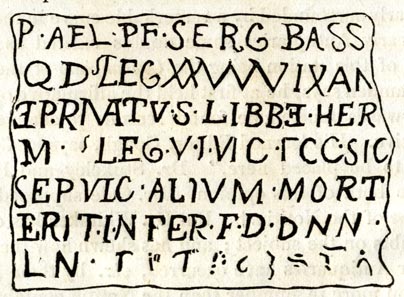 P·AEL·P·F·SERG BASS
Q D LEG XX VVV VIXAN
ƎP·RIVATVS·LIBBƎ·HER
M· LEG·VI·VIC·ΓCC·SIC
SEPVLC·ALIVM·MORT
ERIT·I·NFER·F·D·DNN·
LN·